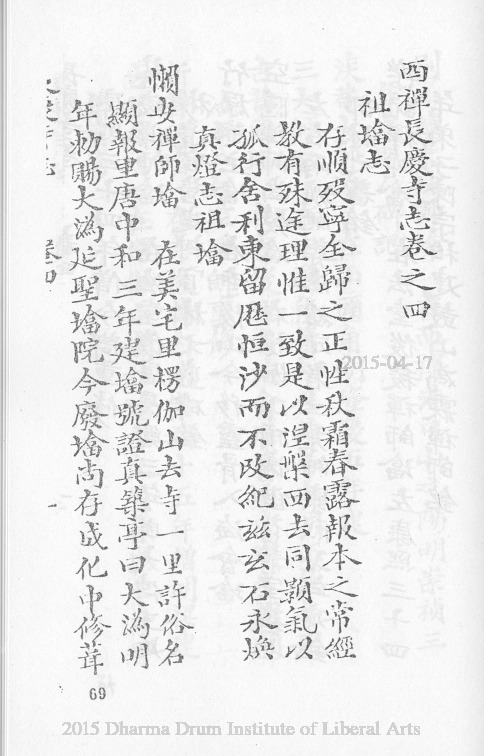 西禪長慶寺志卷之四
祖墖志
存順歿寧全歸之正性秋霜春露報本之常經
教有殊途理惟一致是以涅槃西去同顥氣以
孤行舍利東留歷恒沙而不改紀兹玄石永煥
真燈志祖墖
懶安禪師墖 在美宅里楞伽山去寺一里許俗名
顯報里唐中和三年建墖號證真築亭曰大溈明
年勑賜大溈延聖墖院今廢墖尚存成化中修葺
卷四 一
69
2015-04-17
2015 Dharma Drum Institute of Liberal Arts